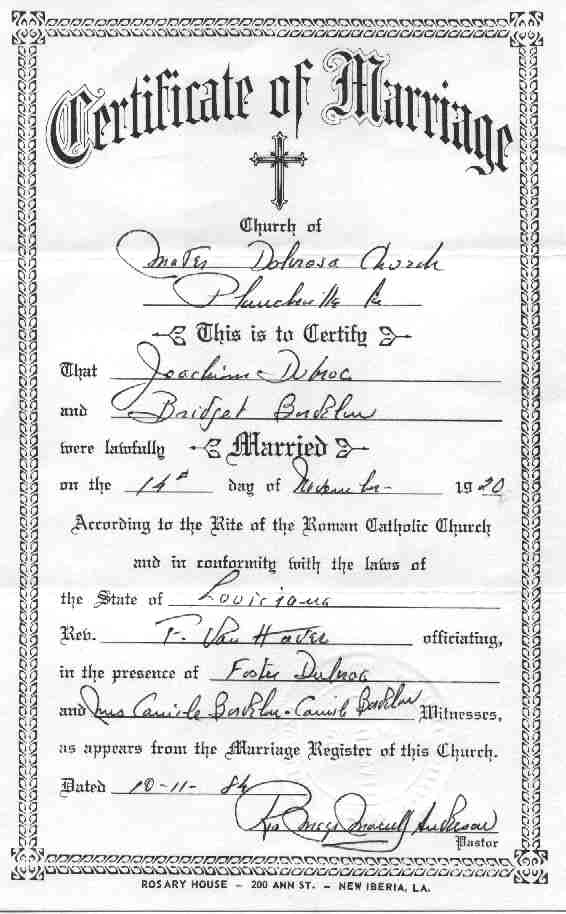 Certificate of Marriage
Church of
Mater Dolorosa Church
Plaucheville La
This is to Certify
That Joachim Dubroc
and Bridget Bordelon
were lawfully Married
on the 14th day of November 1920
According to the Rite of the Roman Catholic Church
and in conformity with the laws of
the State of Louisiana
Rev. F. Van Haver officiating,
in the presence of Foster Dubroc
and Mrs Camile Bordelon - Camile Bordelon Witnesses,
as appears from the Marriage Register of this Church.
Dated 10-11-
Anderson
Pastor
ROSARY HOUSE – 200 ANN ST. – NEW IBERIA, LA.